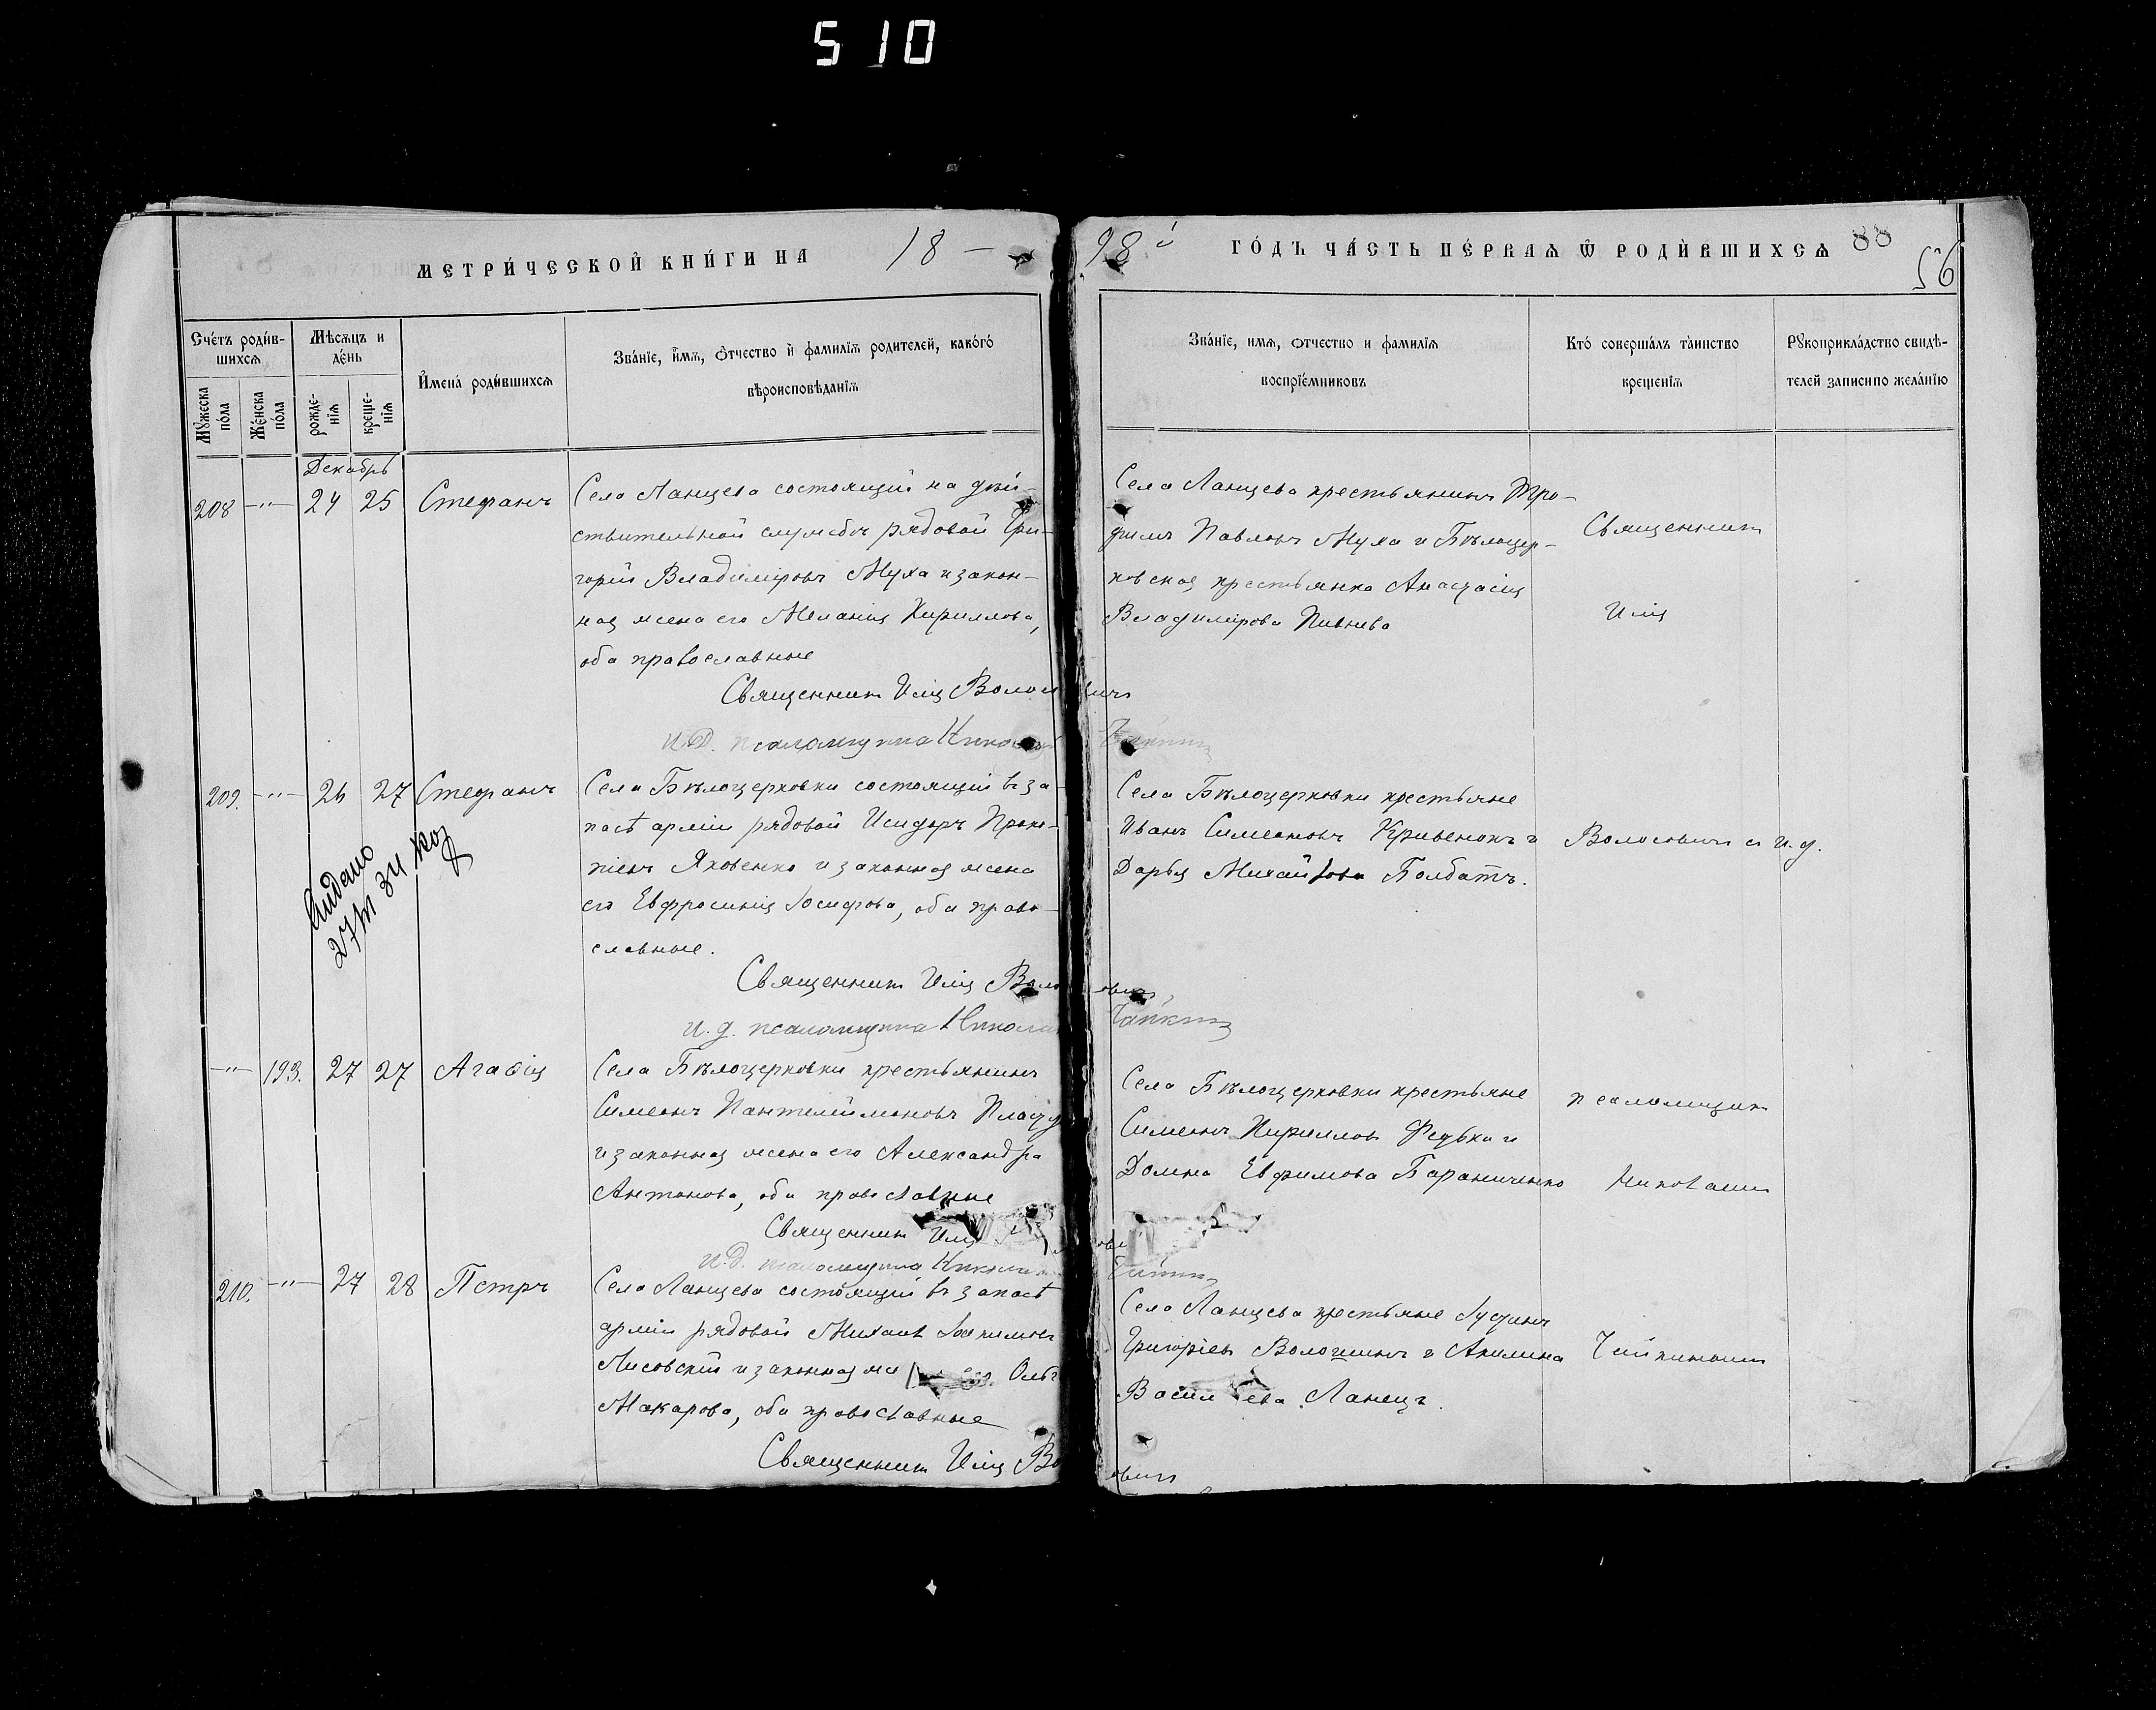 510
МЕТРИ́ЧЕСКОЙ КНИ́ГИ НА 18-
98й ГО́ДЪ ЧА́СТЬ ПЕ́РВАѦ Ѿ РОДИ́ВШИХСѦ 88
56
Сче́тъ роди́в-
шихсѧ
Мѣсѧцъ и
де́нь
И҆мена́ роди́вшихсѧ
Зва́нїе, и҆́мѧ, ѻ҆́тчество и҆ фамилїѧ родителей, како́гѡ
вѣроисповѣданїѧ
Мꙋ́жеска
по́ла
Же́нска
по́ла
рожде-
нїѧ
креще-
нїѧ
Зва́нїе, имѧ, ѻтчество и фамилїѧ
воспрїе́мниковъ
Кто́ совершалъ та́инство
креще́нїѧ
Рꙋкоприкла́дство свидѣ-
телей записи по жела́нїю
Декабрь
208 -"- 24 25 Стефанъ
Села Ланцева состоящій на дѣй-
ствительной службѣ рядовой Гри-
горій Владиміровъ Муха и закон-
ная жена его Меланія Кириллова,
оба православные
Священникъ Илія Волосовичъ
И.Д. псаломщика Николай Чайкинъ
Села Ланцева крестьянинъ Тро-
фимъ Павловъ Муха и Бѣлоцер-
ковская крестьянка Анастасія
Владимірова Пивнева
Священникъ
Илія
209. -"- 26 27 Стефанъ
Села Бѣлоцерковки состоящій въ за-
пасѣ арміи рядовой Исидоръ Проко-
піевъ Яковенко и законная жена
его Евфросинія Іосифова, оба право-
славные.
Священникъ Илія Волосовичъ,
И.д. псаломщика Николай Чайкинъ
Видано
27/
Села Бѣлоцерковки крестьяне
Иванъ Симеоновъ Кривенокъ и
Дарья Михайлова Болбатъ.
Волосовичъ съ и.д.
-"- 193. 27 27 Агафія
Села Бѣлоцерковки крестьянинъ
Симеонъ Пантелеймоновъ
и законная жена его Александра
Антонова, оба православные
Священникъ Илія
И.Д. псаломщика Николай Чайкинъ
Села Бѣлоцерковки крестьяне
Симеонъ Кирилловъ Федько и
Домна Евфимова Бараниченко
псаломщик
Николаемъ
210. -"- 27 28 Петръ
Села Ланцева состоящій въ запасѣ
арміи рядовой Михаилъ Іоакимовъ
Лисовскій и законная же его Ольга
Макарова, оба православные
Священникъ Илія Волосовичъ
Села Ланцева крестьяне Іустинъ
Григоріевъ Волошинъ и Акилина
Васильева Ланецъ.
Чайкинымъ